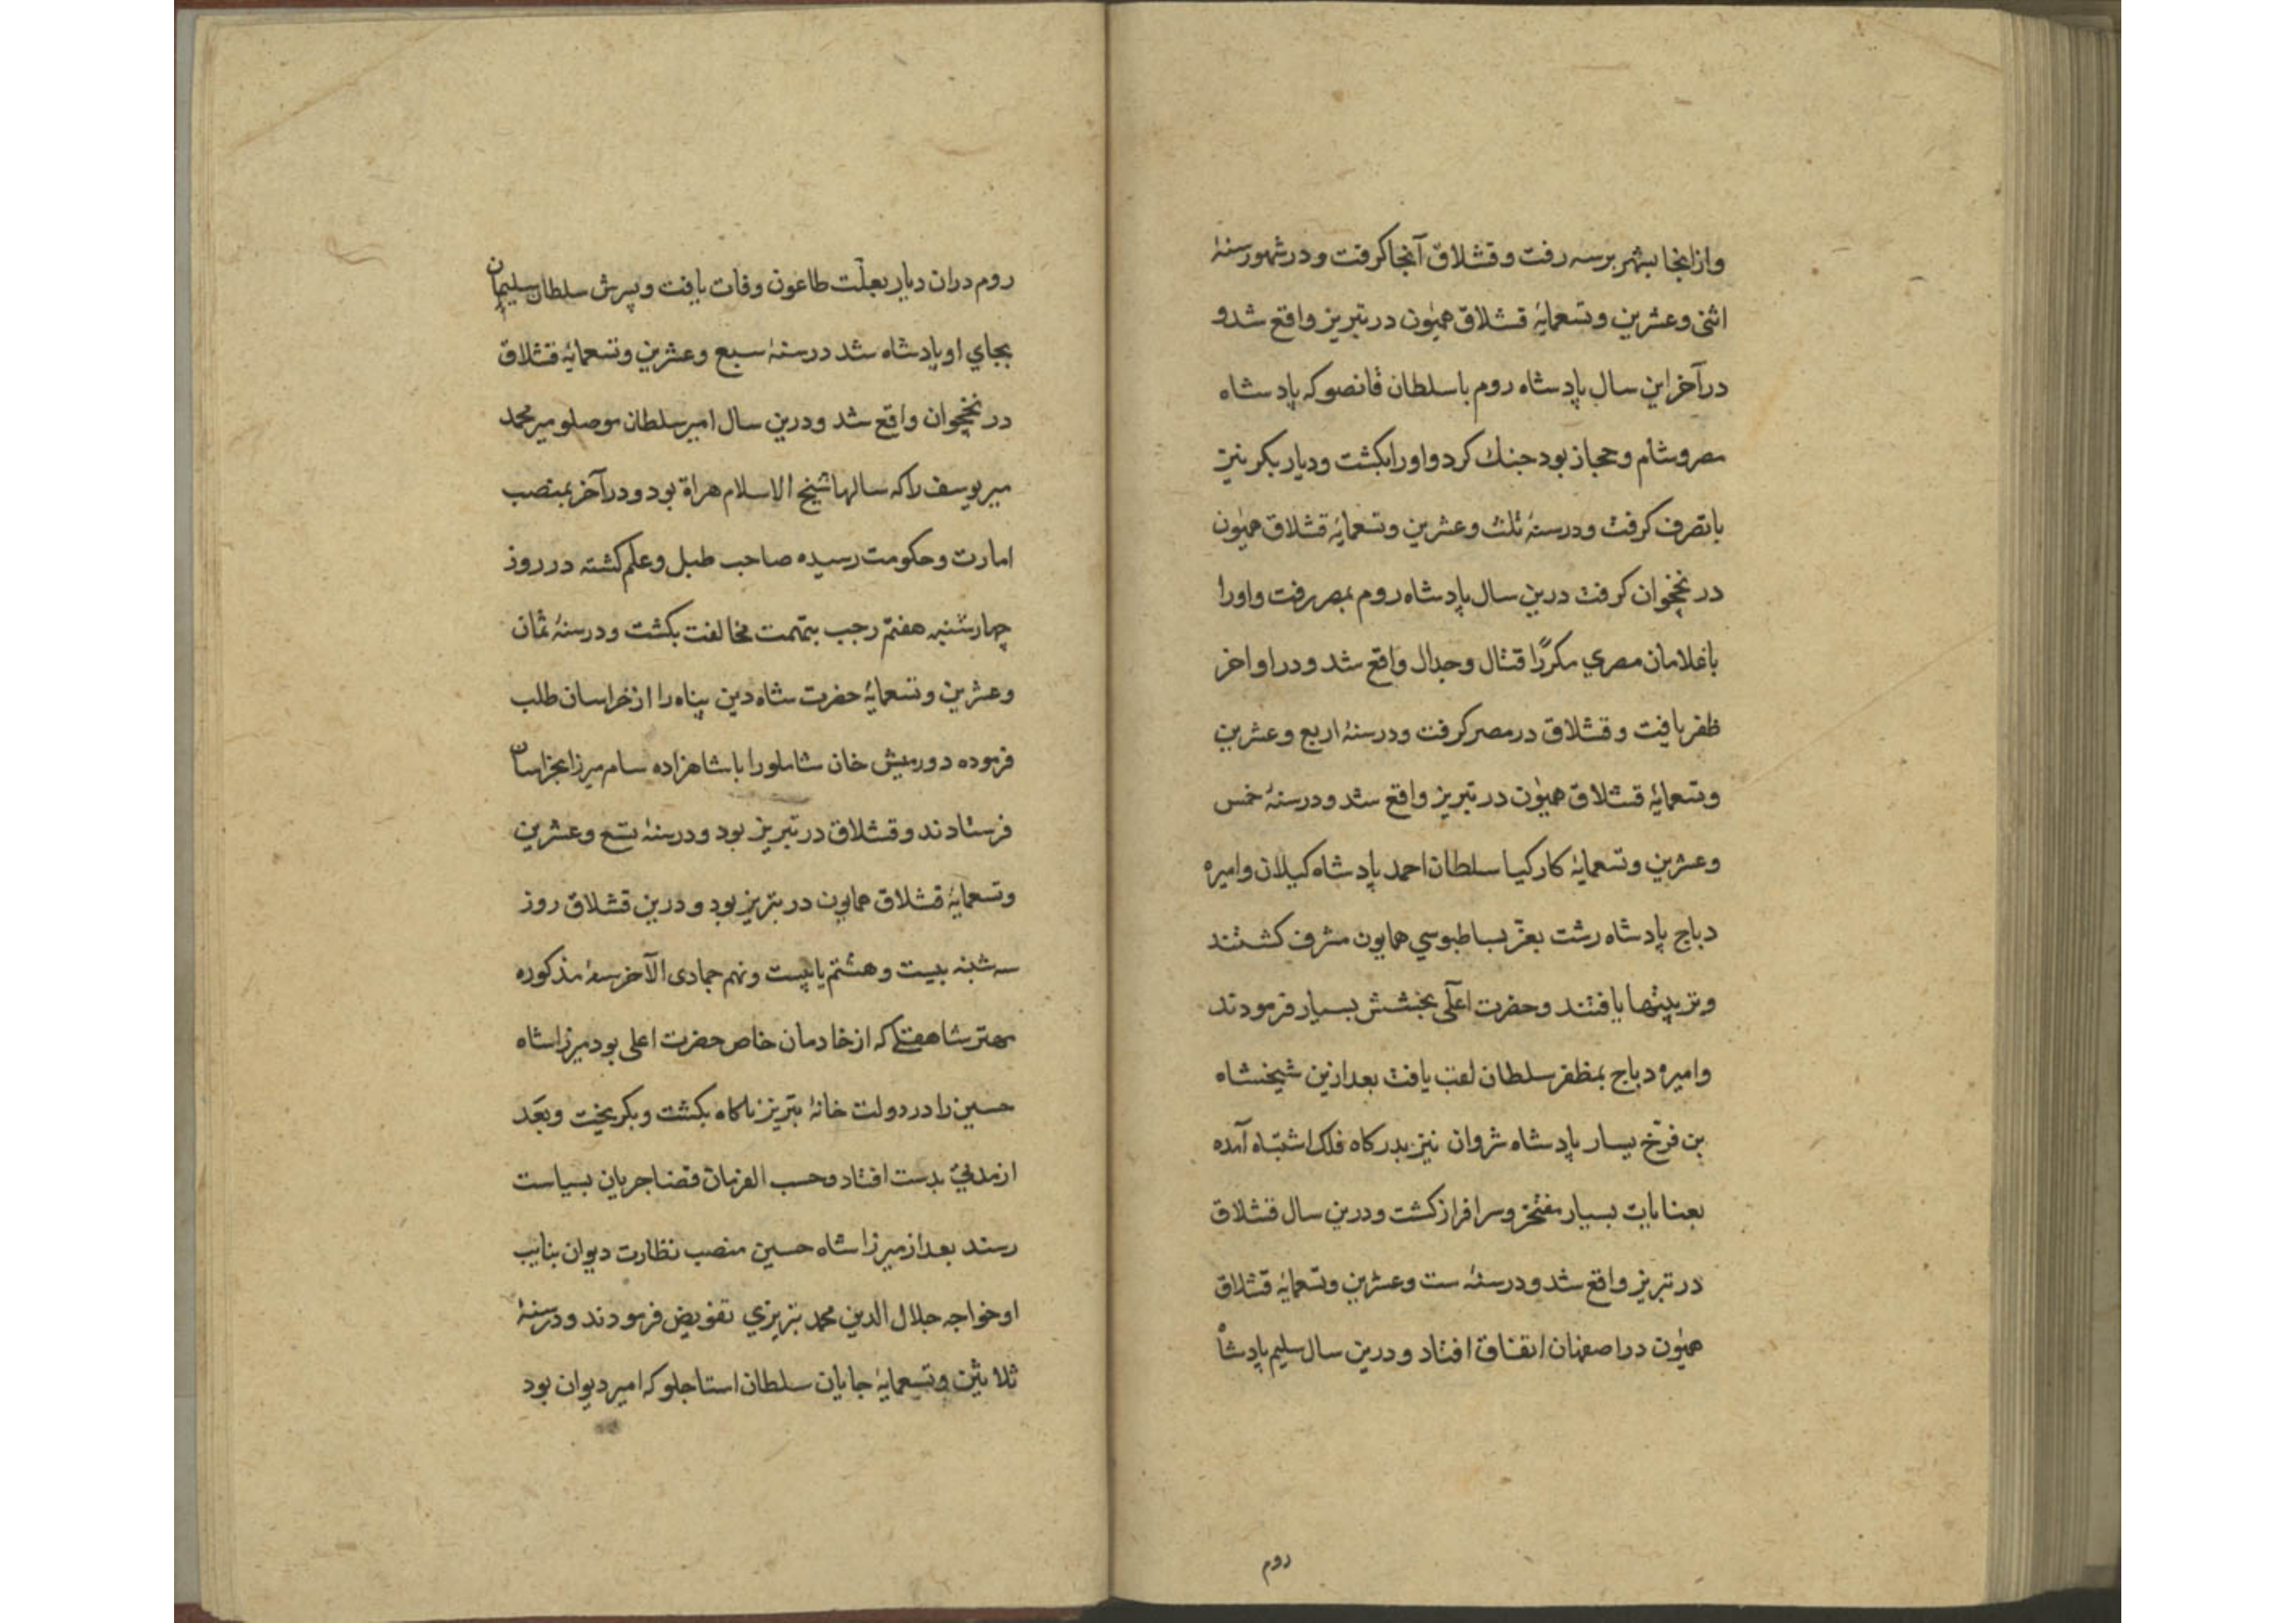 وازانجا بشهر برسه رفت و قشلاق آنجا کرفت و در شهور سنۀ
اثنی وعشرین وتسعمایۀ قشلاق همیون در تبریز واقع شد و
در آخر این سال پادشاه روم با سلطان قانصو که پادشاه
مصر و شام و حجاز بود جنك کرد و او را بکشت و دیار بکر نیز
با تصرف کرفت و در سنۀ ثلث وعشرین وتسعمایۀ قشلاق همیون
در نخچوان کرفت درین سال پادشاه روم بمصر رفت و او را
با غلامان مصري مکررًا قتال و جدال واقع شد و در اواخر
ظفر یافت و قشلاق در مصر کرفت و در سنۀ اربع وعشرین
وتسعمایۀ قشلاق همیون در تبریز واقع شد و در سنۀ خمس
وعشرین وتسعمایۀ کارکیا سلطان احمد پادشاه کیلان و امیره
دباج پادشاه رشت بعزّ بساطبوسي همایون مشرف کشتند
و تربیتها یافتند و حضرت اعلی بخشش بسیار فرمودند
و امیره دباج بمظفر سلطان لقب یافت بعد ازین شیخشاه
بن فرّخ یسار پادشاه شروان نیز بدرکاه فلك اشتباه آمده
بعنایات بسیار مفتخر و سرافراز کشت و درین سال قشلاق
در تبریز واقع شد و در سنۀ ست وعشرین وتسعمایۀ قشلاق
همیون در اصفهان اتفاق افتاد و درین سال سلیم پادشاه
روم
روم دران دیار بعلّت طاعون وفات یافت و پسرش سلطان سلیمان
بجاي او پادشاه شد در سنۀ سبع وعشرین وتسعمایۀ قشلاق
در نخچوان واقع شد و درین سال امیر سلطان موصلو میر محمد
میر یوسف را که سالها شیخ الاسلام هراة بود و در آخر بمنصب
امارت و حکومت رسیده صاحب طبل و علم کشته در روز
چهارشنبه هفتم رجب بتهمت مخالفت بکشت و در سنۀ ثمان
وعشرین وتسعمایۀ حضرت شاه دین پناه را از خراسان طلب
فرموده دورمیش خان شاملو را با شاهزاده سام میرزا بخراسان
فرستادند و قشلاق در تبریز بود و در سنۀ تسع وعشرین
وتسعمایۀ قشلاق همایون در تبریز بود و درین قشلاق روز
سه شنبه بیست و هشتم یا بیست و نهم جمادی الآخر سنۀ مذکوره
مهتر شاهقلي که از خادمان خاص حضرت اعلی بود میرزا شاه
حسین را در دولت خانۀ تبریز ناکاه بکشت و بکریخت و بعد
از مدتي بدست افتاد و حسب الفرمان قضا جریان بسیاست
رسند بعد از میرزا شاه حسین منصب نظارت دیوان بنایب
او خواجه جلال الدین محمد تبریزي تفویض فرمودند و در سنۀ
ثلاثین وتسعمایۀ جایان سلطان استاجلو که امیر دیوان بود